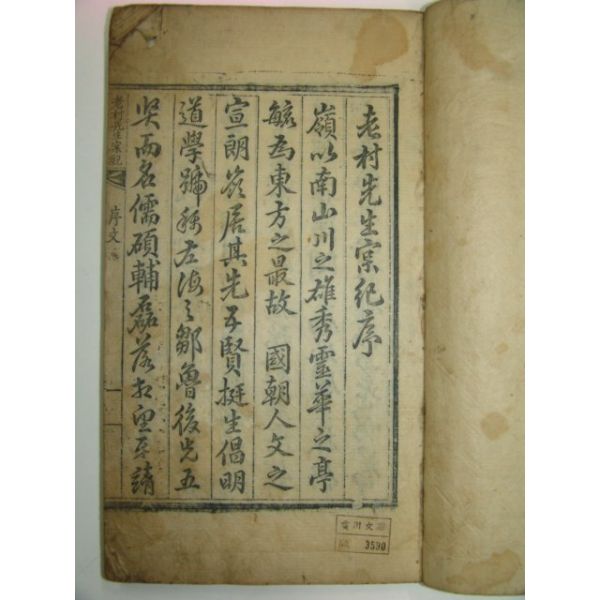 老村先生實紀序
嶺以南山川之雄秀靈華之亭
毓爲東方之最故 國朝人文之
宣朗咨居其先五賢挺生倡明
道學號稱左海之鄒魯後先五
吴而名儒碩輔磊落相望至請
老村先生實紀
序文
一
文
3530